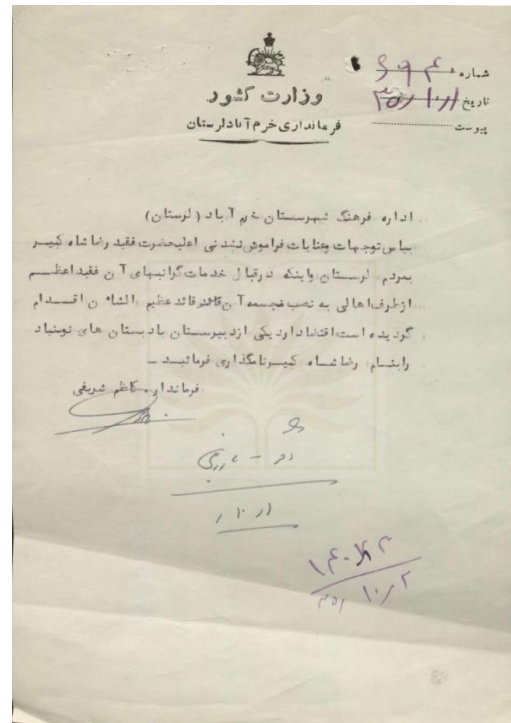 شماره ۶۹۴
وزارت کشور
تاریخ ۳۵/۱۰/۱
فرمانداری خرم آباد لرستان
پیوست
اداره فرهنگ شهرستان خرم آباد (لرستان)
بپاس توجهات وعنایات فراموش نشدنی اعلیحضرت فقید رضا شاه کبیر
بمردم لرستان واینکه درقبال خدمات گرانبهای آن فقید اعظم
ازطرف اهالی به نصب مجسمه آن قائد عظیم الشان اقدام
گردیده است اقتضا دارد یکی از دبیرستان یا دبستان های نوبنیاد
را بنام رضا شاه کبیر نامگذاری فرمائید ـ
فرماندار ـ کاظم شریفی
۱۰/۱